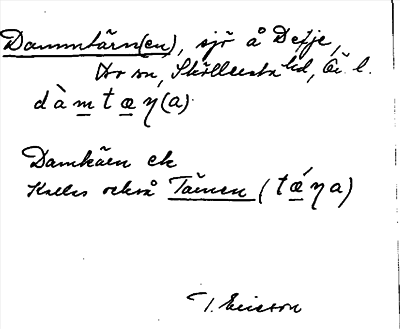 Dammtärn(en), sjö å Defje,
Vr sn, Sköllersta hd, Ö. l.
dàmtæŋ(a)
Damkäen ek
Kallas också Tärnen (tǽŋa)
T. Ericson